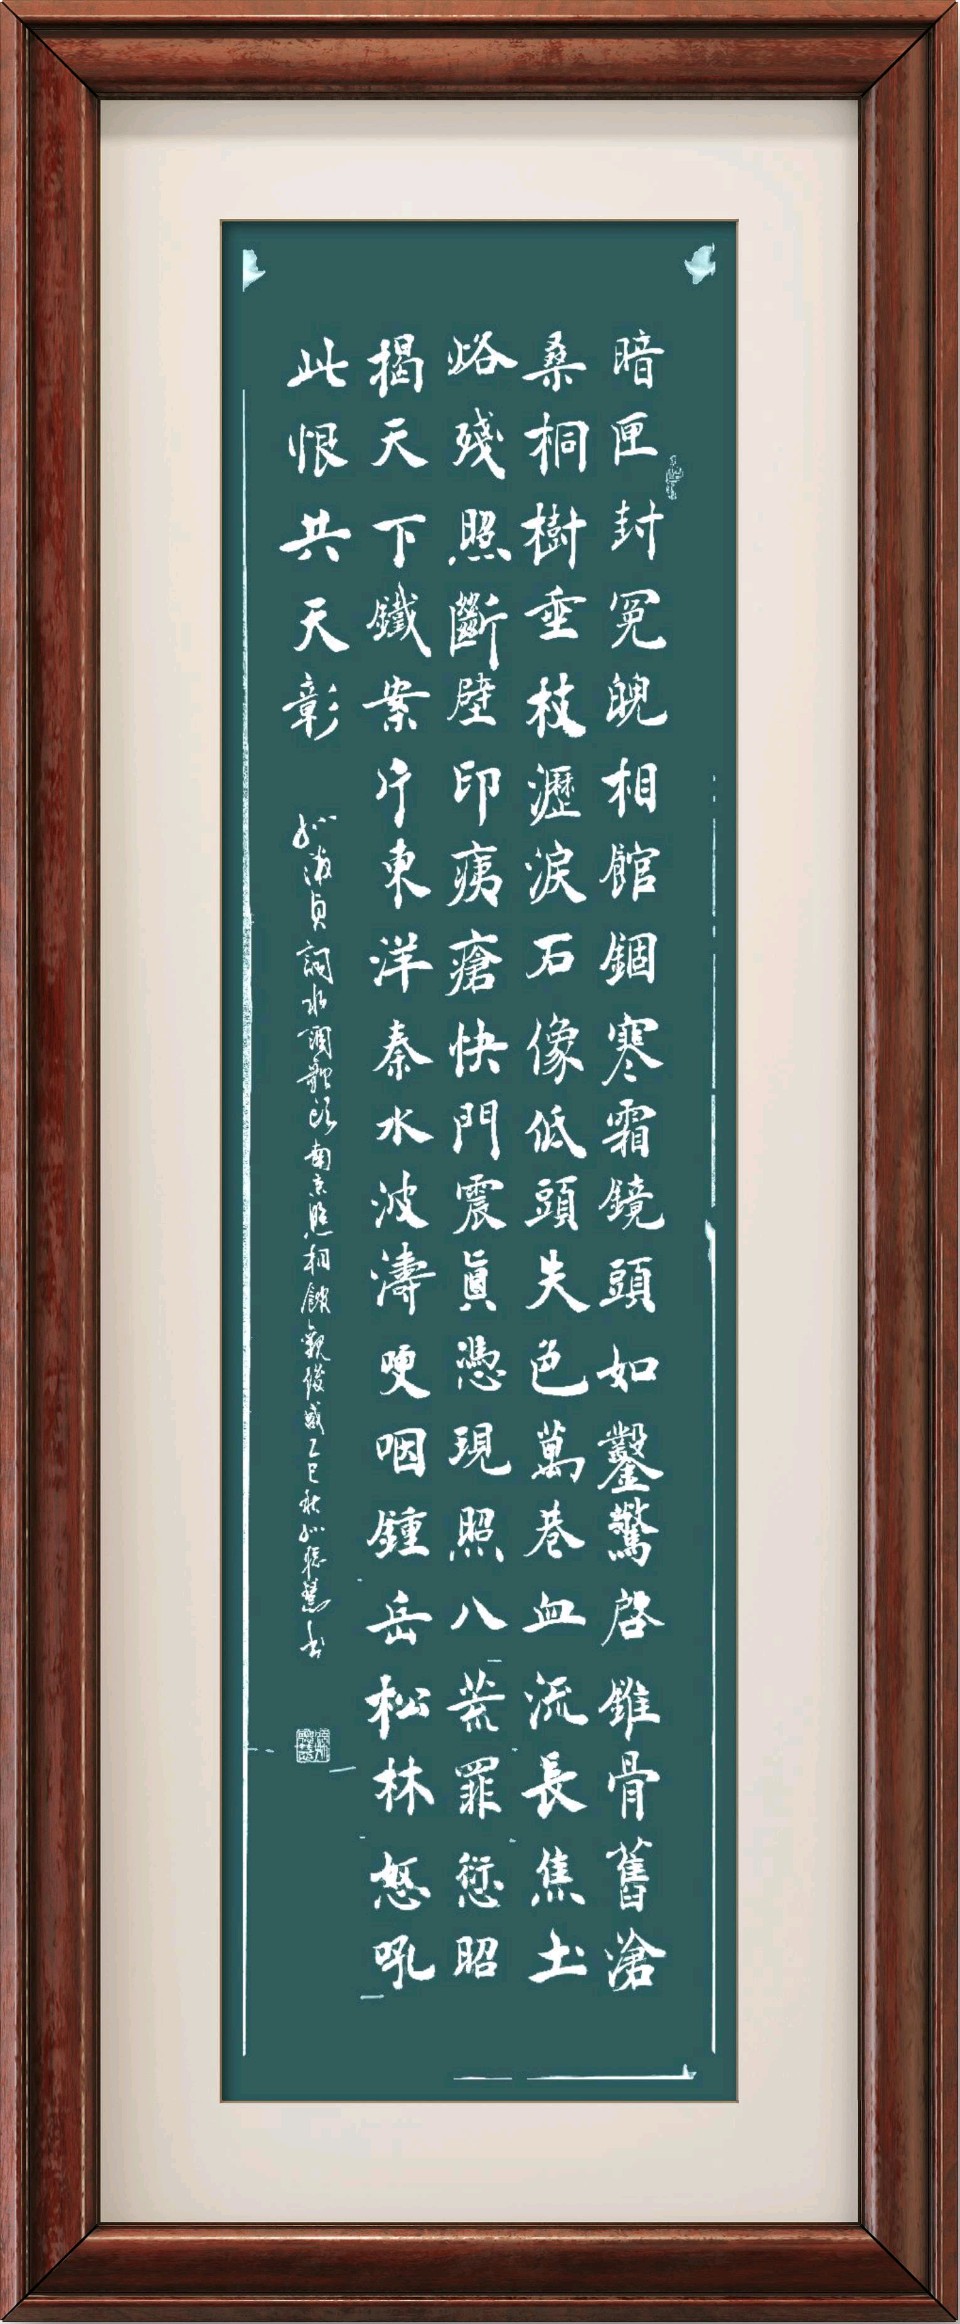 暗匣封冤魄相館錮寒霜鏡頭如鑿驚啓錐骨舊滄
桑桐樹垂枝瀝淚石像低頭失色萬巷血流長焦土
烙殘照斷壁印痍瘡快門震真憑現照八荒罪愆昭
揭天下鐵案片東洋秦水波濤哽咽鍾岳松林怒吼
此恨共天彰
淑貞詞水調歌頭南京照相館觀後感乙巳秋 慧書